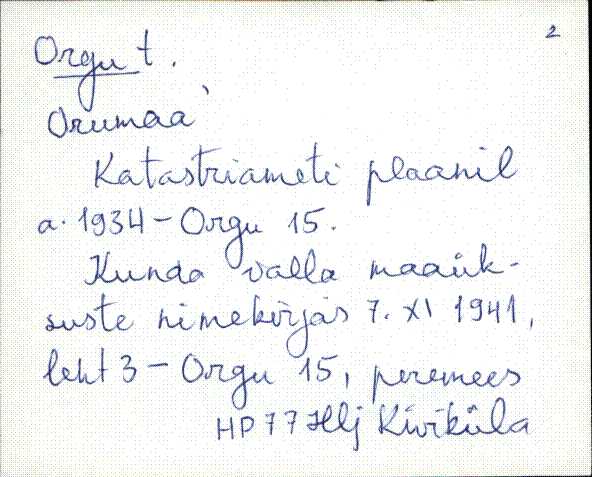 2
Orgu t.
Orumaa`
Katastriameti plaanil
a. 1934 - Orgu 15.
Kunda valla maaük-
suste nimekirjas 7. XI 1941,
leht 3 - Orgu 15, peremees
HP 77 Hlj Kiviküla